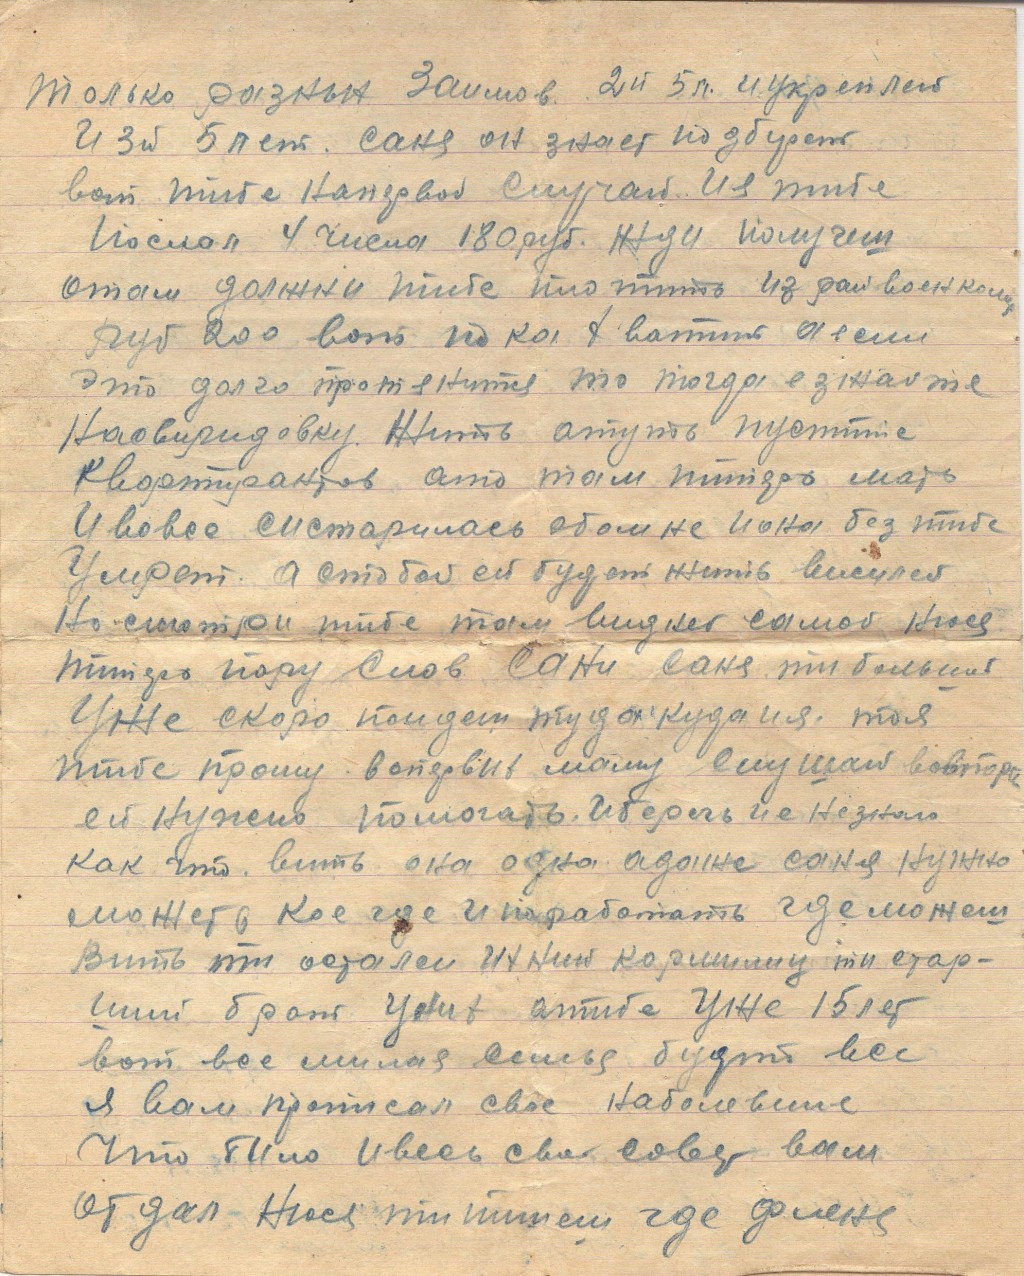 Только разнын Займов. 2й 5л. и укреплей
И 3й 5 лет. Саня он знает подбурет
вот тибе напервой случай. И я тибе
Послал 4 числа 180 руб. Жди получеш
отам должни тибе плотить из райвоенком
руб 200 вот пока хватит а если
это долго протянитя то тогда езжаите
Жить атуть пустите
Квортирантов ато там типерь мать
И вовсе систарилась обомне иона без тибе
Умрет. А стобой ей будет жить висилей
Но смотри тибе там виднеб самой Нюся
типерь пору слов Сани Саня ти большой
Уже скоро поидеш туда куда ия. тоя
тибе прошу вопервих маму слушай вовтори
ей нужно помогать. Иберечь ие незнаю
как что. вить она одна адаже саня нужно
можеть кое где и поработать где можеш
Вить ти осталси ихний кормилиц ти стар-
ший брат У них атибе Уже 15 лет
вот все милая Семья будет все
Я вам прописал свое наболевшие
Что било ивесь свой совет вам
Отдал Нюся ти пишеш где Фленя